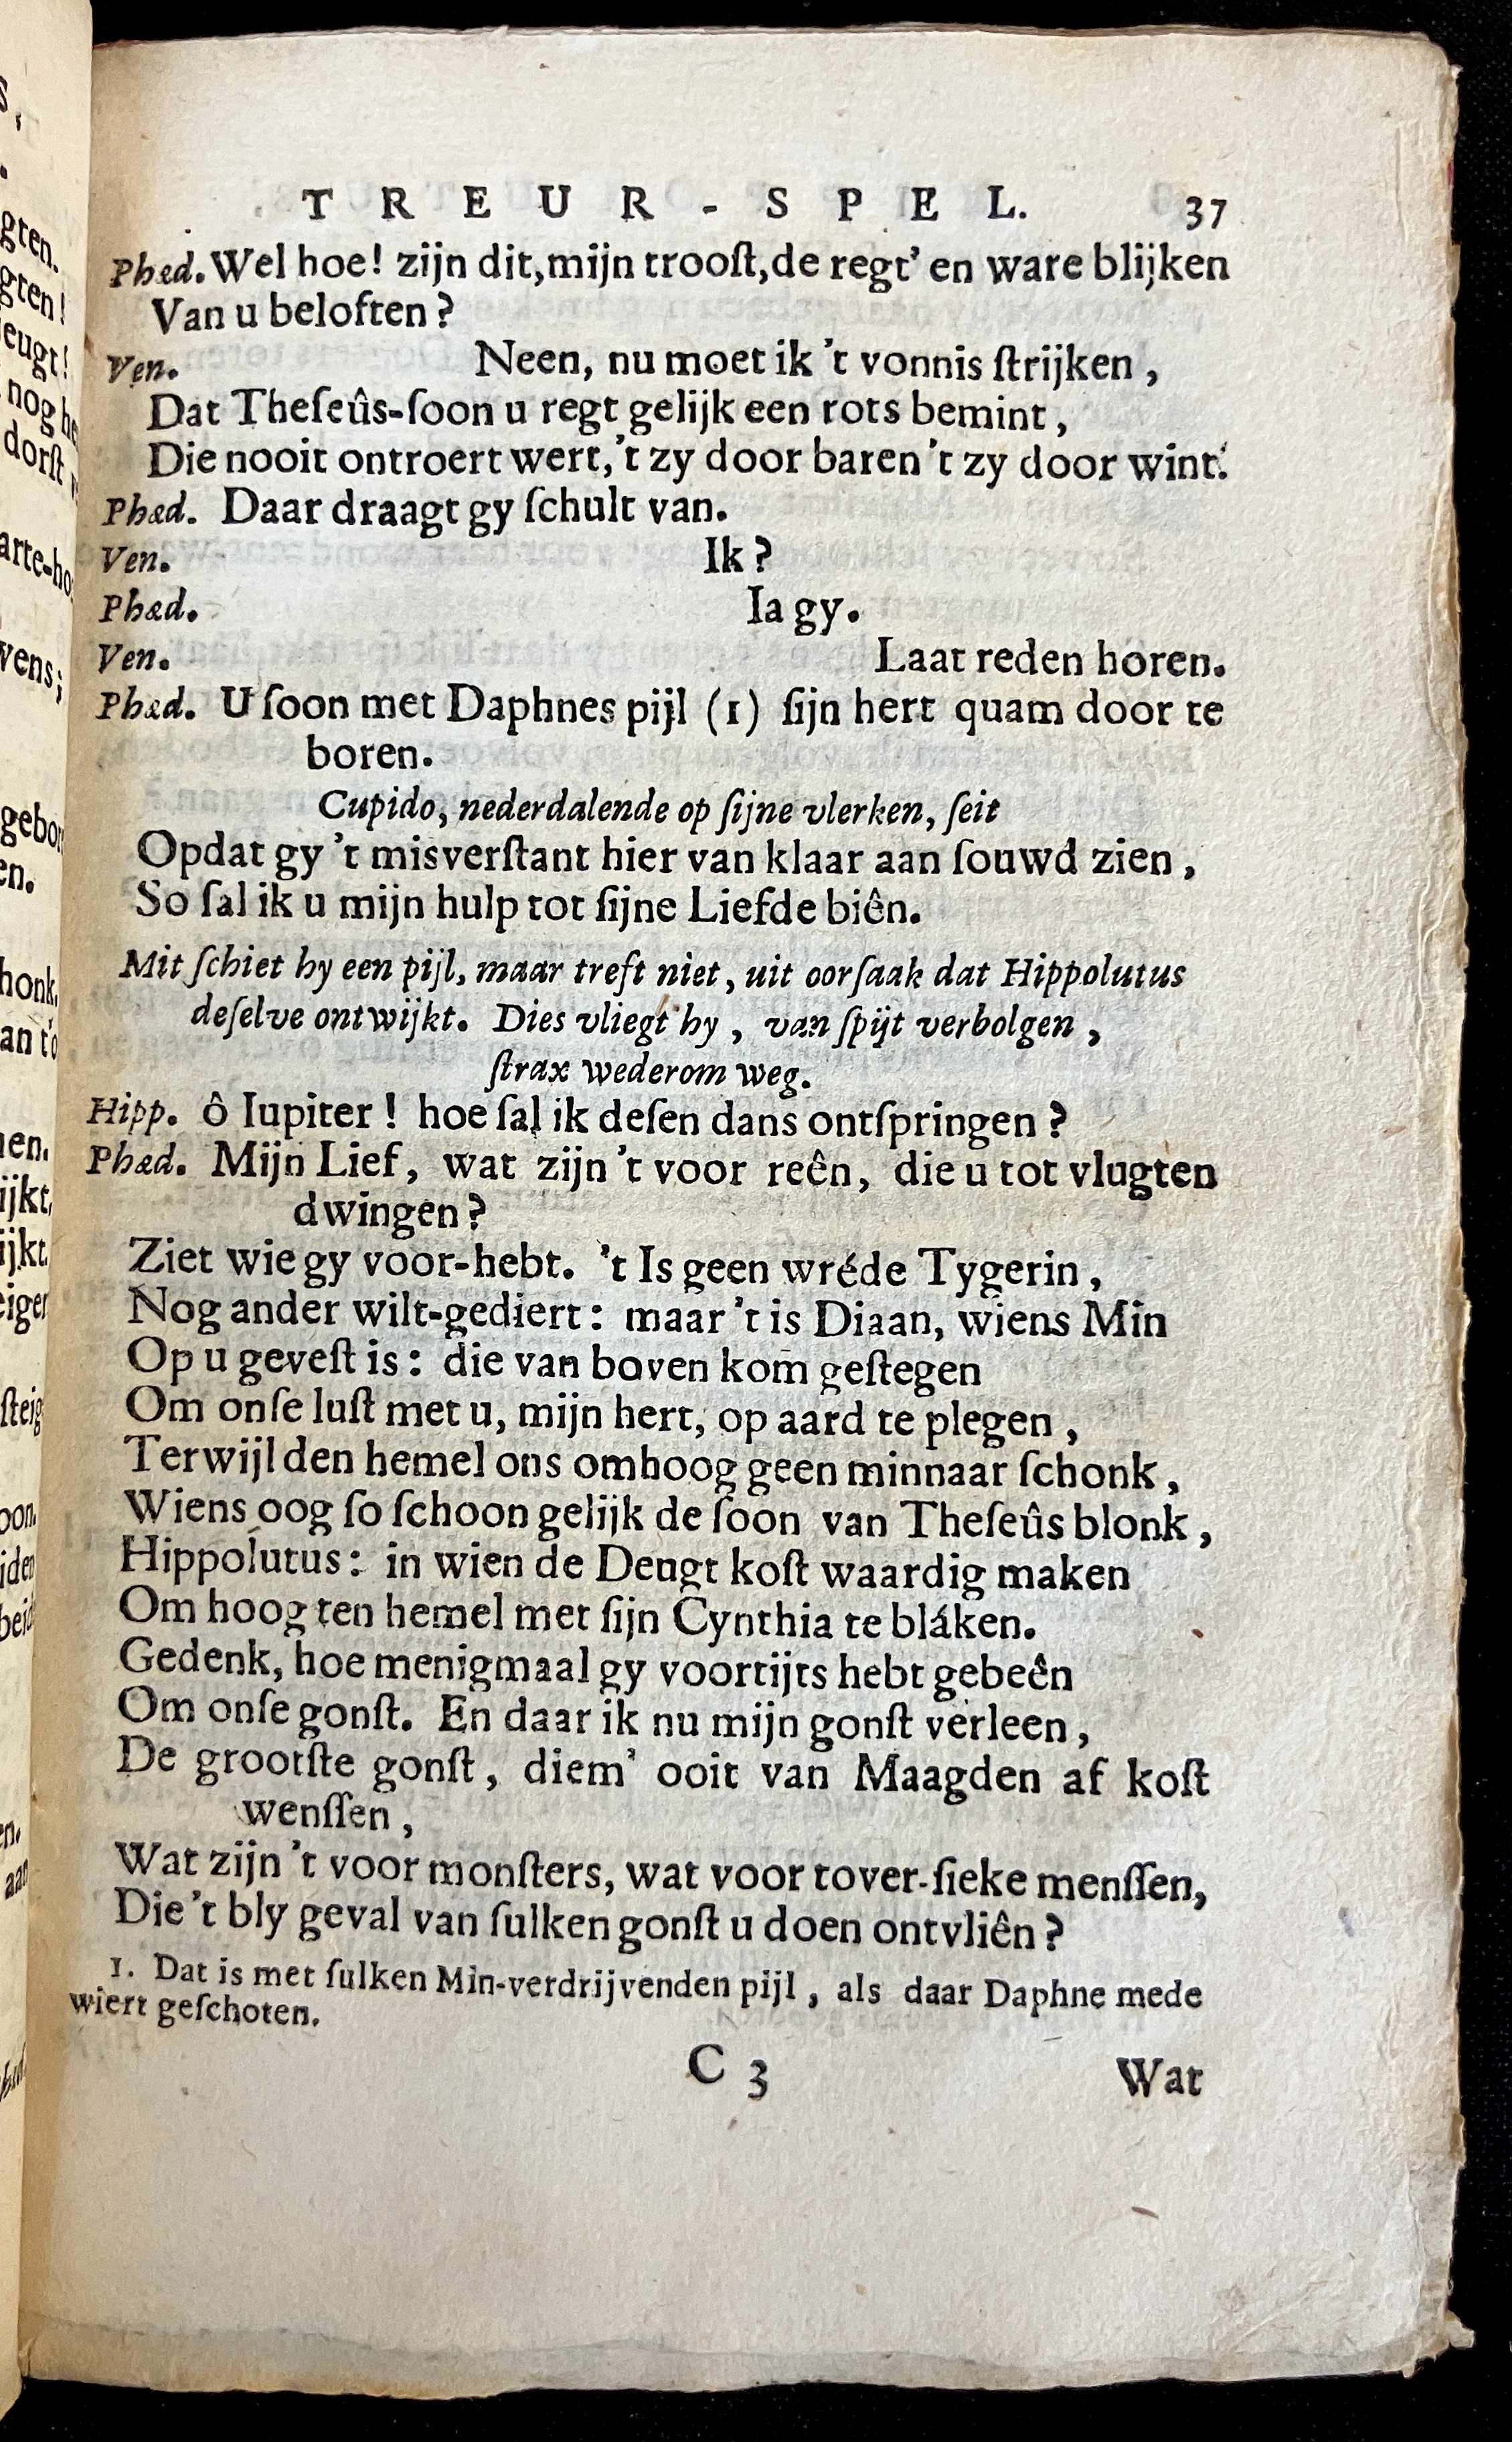 TREUR-SPEL. 37
Phæd. Wel hoe! zijn dit, mijn trooſt, de regt' en ware blijken
Van u beloften?
Ven. Neen, nu moet ik 't vonnis ſtrijken,
Dat Theſeûs-ſoon u regt gelijk een rots bemint,
Die nooit ontroert wert, 't zy door baren 't zy door wint.
Phæd. Daar draagt gy ſchult van.
Ven. Ik?
Phæd. Ia gy.
Ven. Laat reden horen.
Phæd. U ſoon met Daphnes pijl (1) ſijn hert quam door te
boren.
Cupido, nederdalende op ſijne vlerken, ſeit
Opdat gy 't misverſtant hier van klaar aan ſouwd zien,
So ſal ik u mijn hulp tot ſijne Liefde biên.
Mit ſchiet hy een pijl, maar treft niet, uit oorſaak dat Hippolutus
deſelve ontwijkt. Dies vliegt hy, van ſpijt verbolgen,
ſtrax wederom weg.
Hipp. ô Iupiter! hoe ſal ik deſen dans ontſpringen?
Phæd. Mijn Lief, wat zijn 't voor reên, die u tot vlugten
dwingen?
Ziet wie gy voor-hebt. 't Is geen wréde Tygerin,
Nog ander wilt-gediert: maar 't is Diaan, wiens Min
Op u geveſt is: die van boven kom geſtegen
Om onſe luſt met u, mijn hert, op aard te plegen,
Terwijl den hemel ons omhoog geen minnaar ſchonk,
Wiens oog ſo ſchoon gelijk de ſoon van Theſeûs blonk,
Hippolutus: in wien de Deugt koſt waardig maken
Om hoog ten hemel met ſijn Cynthia te bláken.
Gedenk, hoe menigmaal gy voortijts hebt gebeên
Om onſe gonſt. En daar ik nu mijn gonſt verleen,
De grootſte gonſt, diem' ooit van Maagden af koſt
wenſſen,
Wat zijn 't voor monſters, wat voor tover-ſieke menſſen,
Die 't bly geval van ſulken gonſt u doen ontvliên?
1. Dat is met ſulken Min-verdrijvenden pijl, als daar Daphne mede
wiert geſchoten.
C 3 Wat